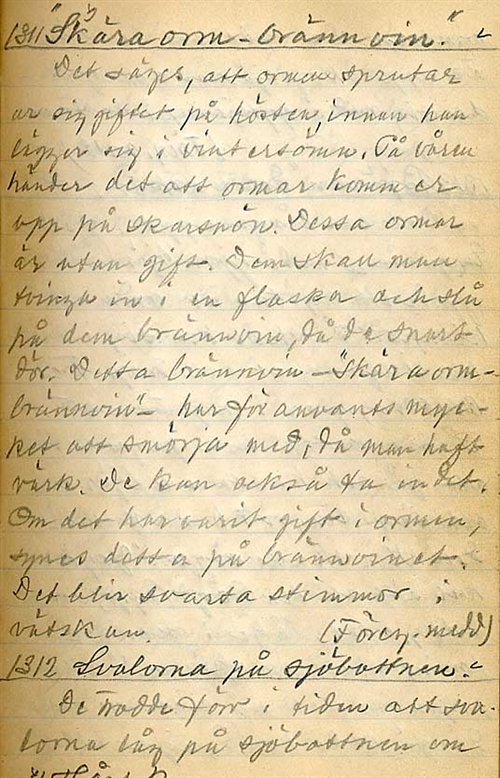 1311 "Skåra orm-brännvin."
Det säges, att ormen sprutar
ur sig giftet på hösten, innan han
lägger sig i vintersömn. På våren
händer det att ormar kommer
upp på skarsnön. Dessa ormar
är utan gift. Dem skall man
tvinga in i en flaska och slå
på dem brännvin, då de snart
dör. Detta brännvin - "Skåra orm-
brännvin" - har för använts myc-
ket att smörja med, då man haft
värk. De kan också ta in det.
Om det har varit gift i ormen,
synes detta på brännvinet.
Det blir svarta stimmor i
vätskan. (Föreg. medd)
1312 Svalorna på sjöbottnen.
De trodde förr i tiden att sva-
lorna låg på sjöbottnen om